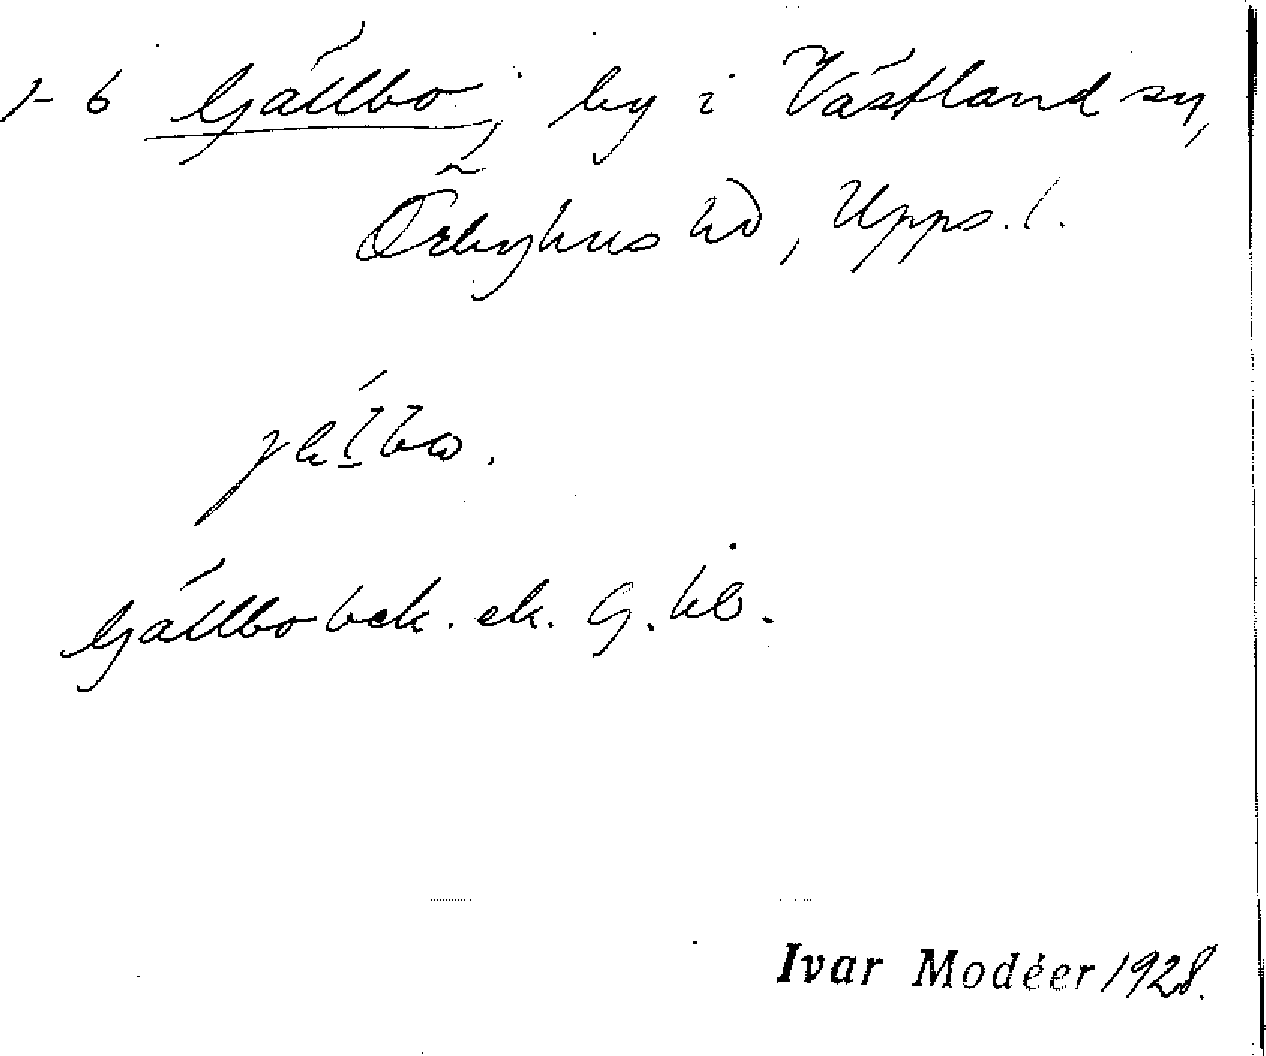 1-6 Gällbo, by i Västland sn,
Örbyhus hd, Upps. l.
Gällbo bek. ek. G. kb.
Ivar Modéer 1928.